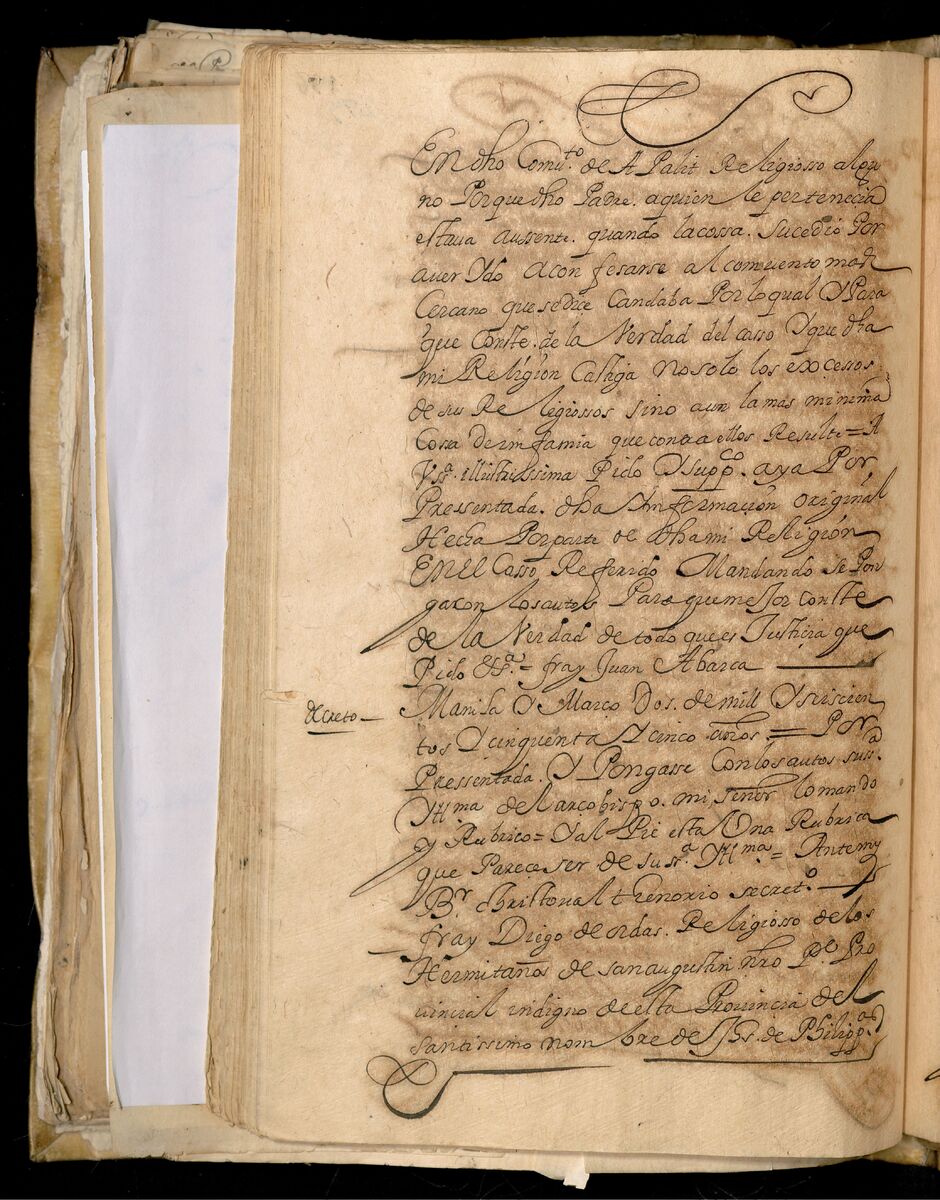 En dho Comu.to de A Palit Religiosso algu
no Porque dho Padre. aquien le pertenecia
estaua aussente. quando la cossa. sucedio Por
auer Ydo a con fesarse al comuento mas
Cercano que se dice Candaba Por lo qual Y Para
que Conste. de la Verdad del casso Y que dha
mi Religion Castiga no solo los excessos
de sus Religiossos sino aun la mas minima
Cossa de infamia que contra ellos Resulte = A
Vs.a illustrissima Pido Y supp.co aya Por
Pressentada. dha Informacion original
Hecha Por parte de dha mi Religion
En el Casso Referido Mandando se Pon
ga con los autos Para que mejor conste
de la Verdad de todo que es Justicia que
Pido &.a = fray Juan Abarca
decreto — Manila Y Março Dos. de mill Y seiscien
tos Y cinquenta Y cinco años. = Por
Pressentada. Y Pongasse Con los autos su s.a
Yll.ma del arcobispo. mi señor lo mando
y Rubrico = Y al Pie esta Una Rubrica
que Parece ser de su s.a Yll.ma = Antemy
B.r christoual thenorio secret.o
fray Diego de ordas. Religiosso de los
Hermitaños de san augustin nro P.e Pro
uincial indigno de esta Prouincia del
santissimo nombre de Jhs. de Philipp.as